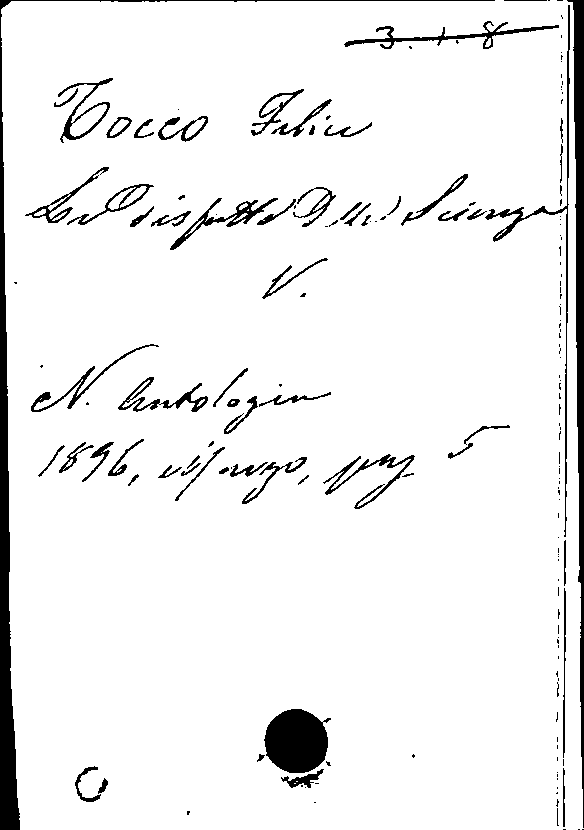 3.1.8
Tocco Felice
La disputa della Scienza
V.
N. Antologia
1896, Marzo, pag 5